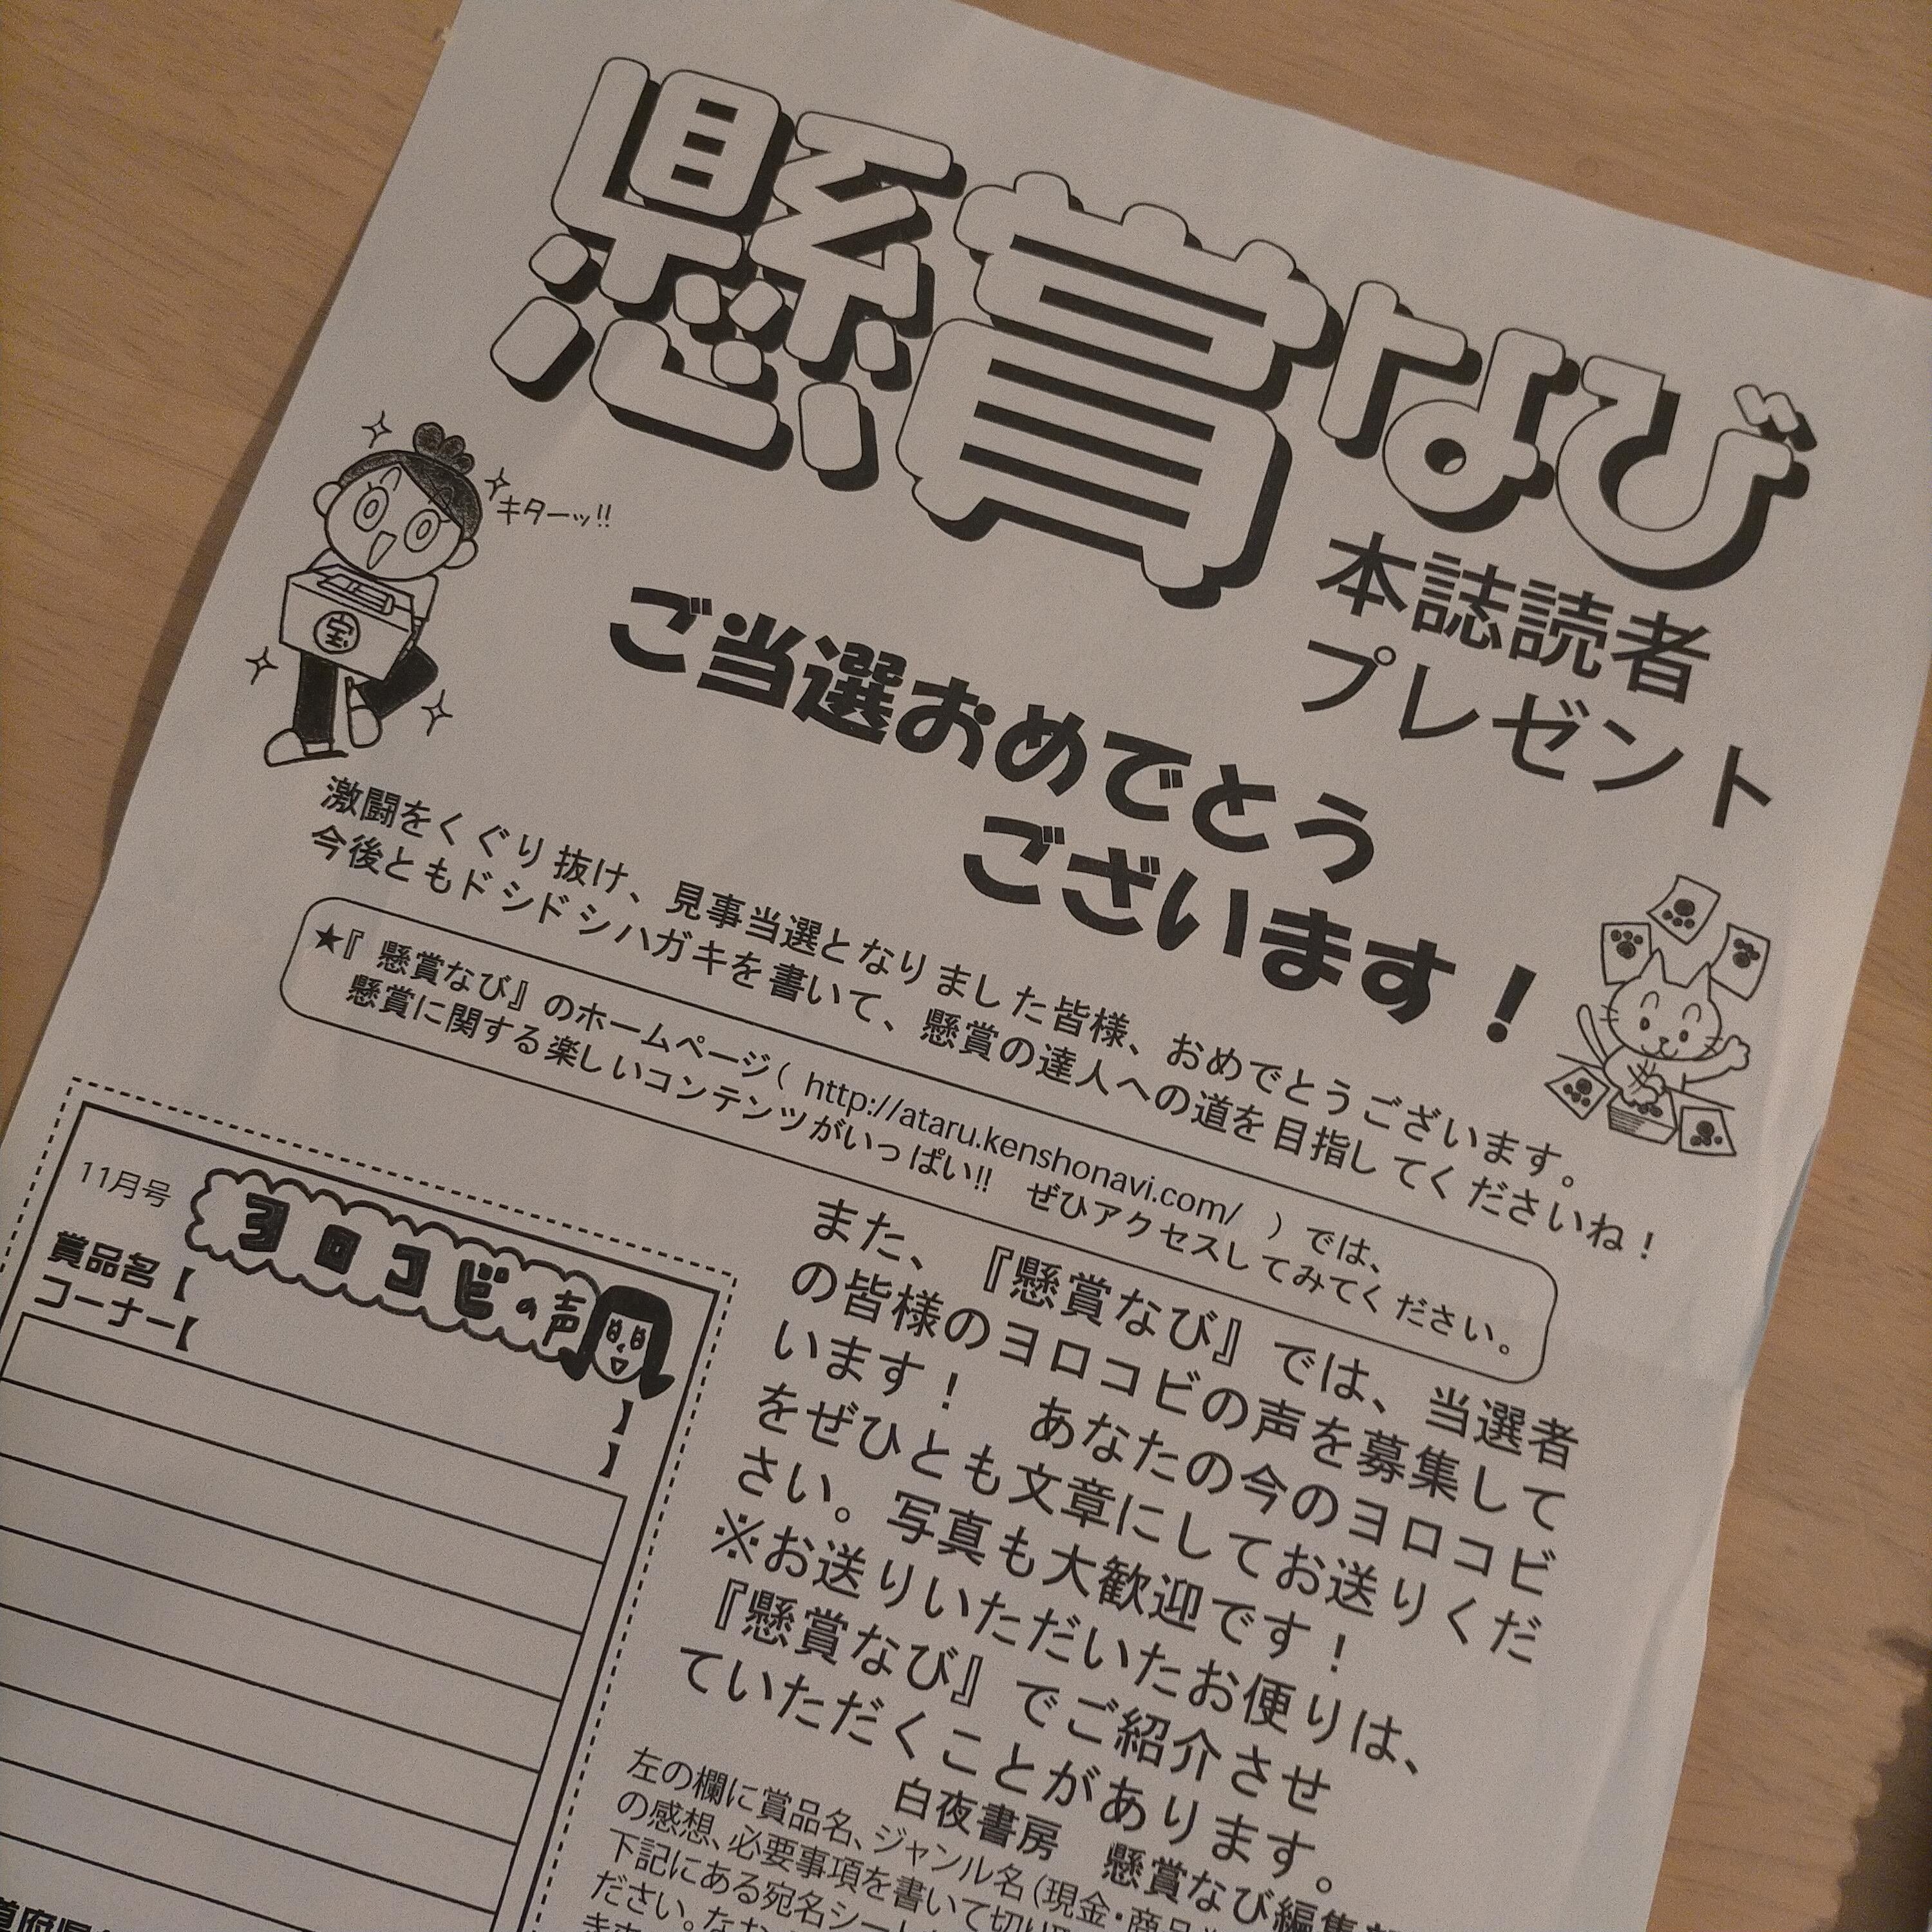 懸賞なび
本誌読者
プレゼント
キターッ!!
宝
ご当選おめでとう
ございます！
激闘をくぐり抜け、見事当選となりました皆様、おめでとうございます。
今後ともドシドシハガキを書いて、懸賞の達人への道を目指してくださいね！
★『懸賞なび』のホームページ（ http://ataru.kenshonavi.com/ ）では、
懸賞に関する楽しいコンテンツがいっぱい!! ぜひアクセスしてみてください。
11月号
ヨロコビの声
賞品名【 】
コーナー【 】
また、『懸賞なび』では、当選者
の皆様のヨロコビの声を募集して
います！ あなたの今のヨロコビ
をぜひとも文章にしてお送りくだ
さい。写真も大歓迎です！
※お送りいただいたお便りは、
『懸賞なび』でご紹介させ
ていただくことがあります。
白夜書房 懸賞なび編集
左の欄に賞品名、ジャンル名（現金・商品
の感想、必要事項を書いて切り
下記にある宛名シー
ださい。なお